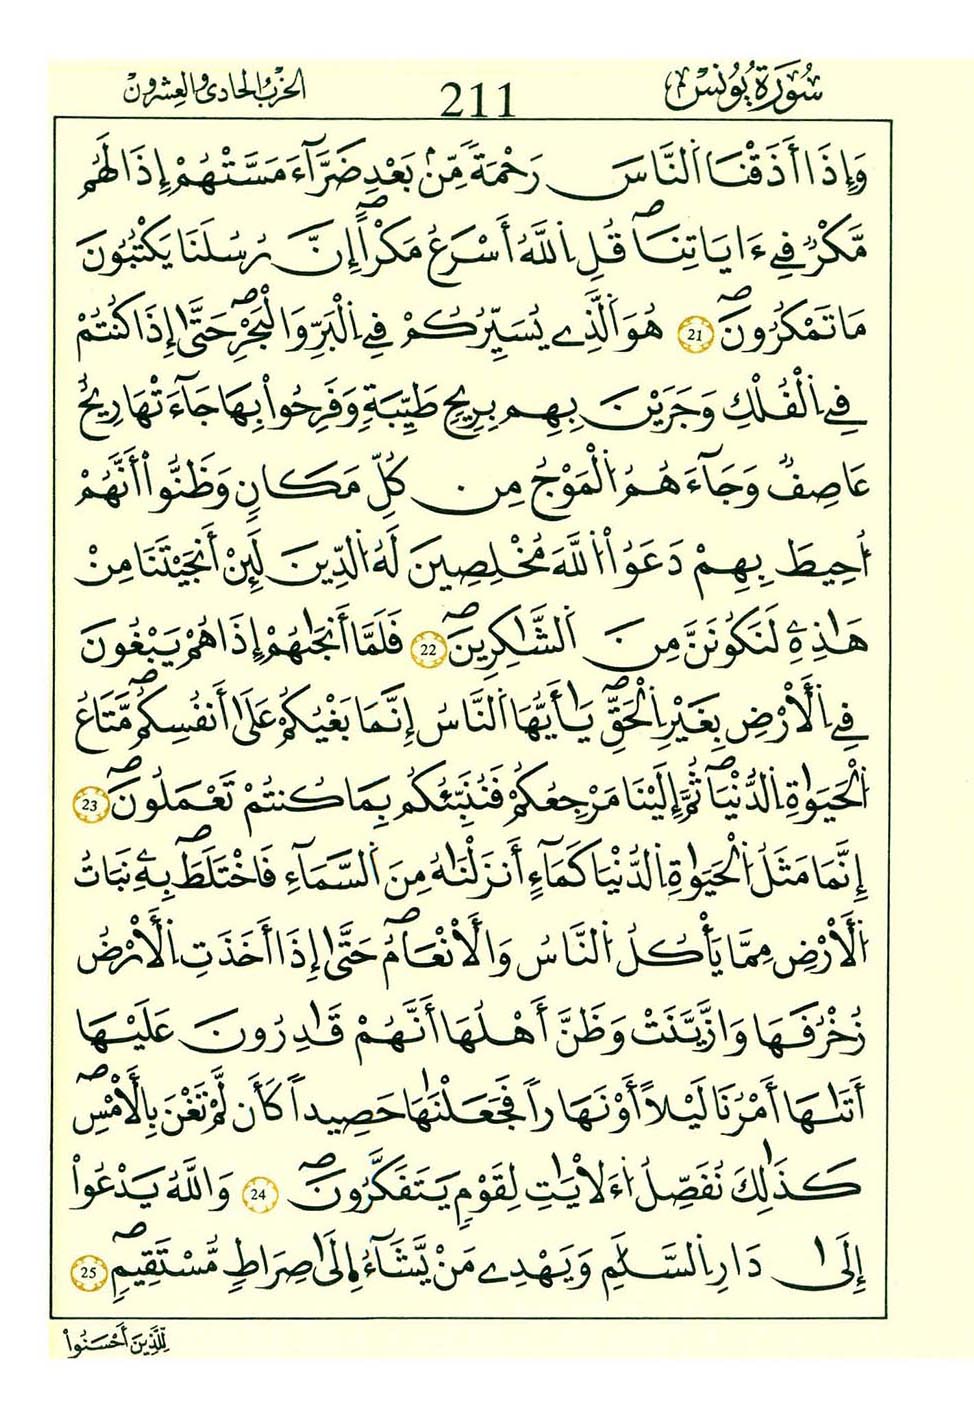 سُورَةُ يُونُسَ 211 الحِزْبُ الحَادِي وَالعِشْرُونَ
وَإِذَا أَذَقْنَا اَ۬لنَّاسَ رَحْمَةٗ مِّنۢ بَعْدِ ضَرَّآءَ مَسَّتْهُمْ إِذَا لَهُم
مَّكْرٞ فِے ءَايَاتِنَاۖ قُلِ اِ۬للَّهُ أَسْرَعُ مَكْراًۖ اِنَّ رُسُلَنَا يَكْتُبُونَ
مَا تَمْكُرُونَۖ 21 هُوَ اَ۬لَّذِے يُسَيِّرُكُمْ فِے اِ۬لْبَرِّ وَالْبَحْرِۖ حَتَّىٰ إِذَا كُنتُمْ
فِے اِ۬لْفُلْكِ وَجَرَيْنَ بِهِم بِرِيحٖ طَيِّبَةٖ وَفَرِحُواْ بِهَا جَآءَتْهَا رِيحٌ
عَاصِفٞ وَجَآءَهُمُ اُ۬لْمَوْجُ مِن كُلِّ مَكَانٖ وَظَنُّواْ أَنَّهُمْ
أُحِيطَ بِهِمْ دَعَوُاْ اُ۬للَّهَ مُخْلِصِينَ لَهُ اُ۬لدِّينَ لَئِنْ أَنجَيْتَنَا مِنْ
هَٰذِهِۦ لَنَكُونَنَّ مِنَ اَ۬لشَّٰكِرِينَۖ 22 فَلَمَّا أَنجَىٰهُمْ إِذَا هُمْ يَبْغُونَ
فِے اِ۬لْأَرْضِ بِغَيْرِ اِ۬لْحَقِّۖ يَٰأَيُّهَا اَ۬لنَّاسُ إِنَّمَا بَغْيُكُمْ عَلَىٰ أَنفُسِكُمۖ مَّتَٰعُ
اُ۬لْحَيَوٰةِ اِ۬لدُّنْيَاۖ ثُمَّ إِلَيْنَا مَرْجِعُكُمْ فَنُنَبِّئُكُم بِمَا كُنتُمْ تَعْمَلُونَۖ 23
إِنَّمَا مَثَلُ اُ۬لْحَيَوٰةِ اِ۬لدُّنْيَا كَمَآءٍ أَنزَلْنَٰهُ مِنَ اَ۬لسَّمَآءِ فَاخْتَلَطَۖ بِهِۦ نَبَاتُ
اُ۬لْأَرْضِ مِمَّا يَأْكُلُ اُ۬لنَّاسُ وَالْأَنْعَٰمُۖ حَتَّىٰ إِذَا أَخَذَتِ اِ۬لْأَرْضُ
زُخْرُفَهَا وَازَّيَّنَتْ وَظَنَّ أَهْلُهَا أَنَّهُمْ قَٰدِرُونَ عَلَيْهَا
أَتَىٰهَا أَمْرُنَا لَيْلاً أَوْ نَهَاراٗ فَجَعَلْنَٰهَا حَصِيداٗ كَأَن لَّمْ تَغْنَ بِالْأَمْسِۖ
كَذَٰلِكَ نُفَصِّلُ اُ۬لْأٓيَٰتِ لِقَوْمٖ يَتَفَكَّرُونَۖ 24 وَاللَّهُ يَدْعُواْ
إِلَىٰ دَارِ اِ۬لسَّلَٰمِ وَيَهْدِے مَنْ يَّشَآءُ اِلَىٰ صِرَٰطٖ مُّسْتَقِيمٖۖ 25
لِّلَّذِينَ أَحْسَنُواْ